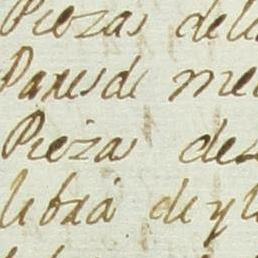 Piezas de
Pares de me
Piezas de
libra de y